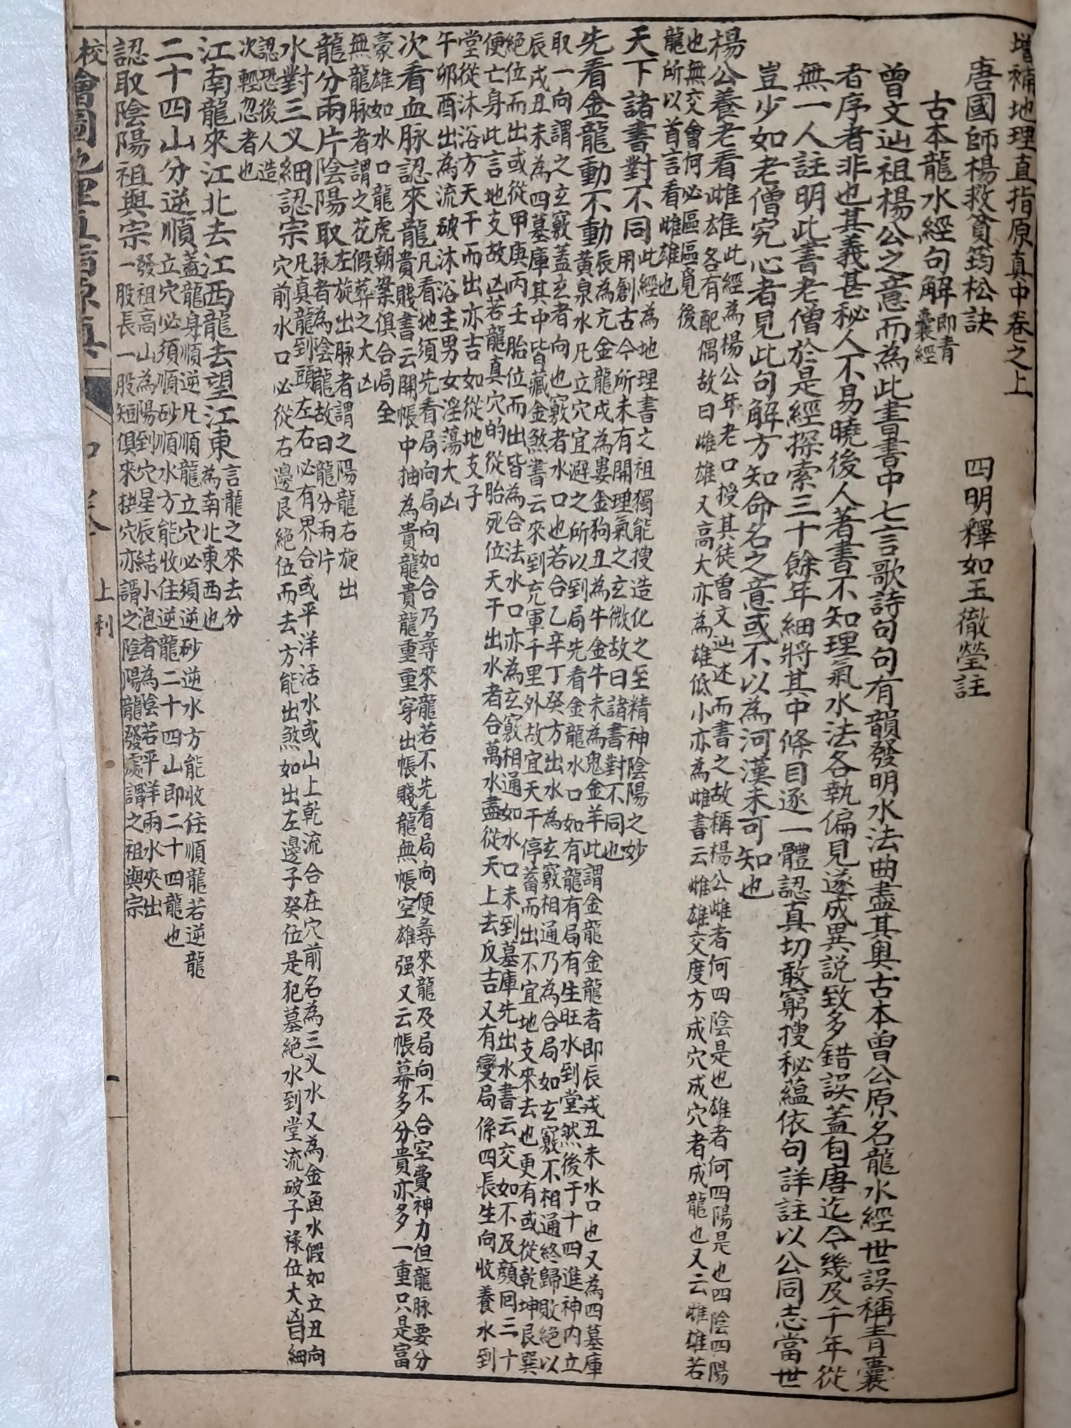 增補地理直指原真中卷之上
唐國師楊救貧筠松訣
四明釋如玉徹瑩註
古本龍水經句解即青囊經
曾文辿祖楊公之意而為此書書中七言歌詩句句有韻發明水法曲盡其奧古本曾公原名龍水經世誤稱青囊
者序者非也其義甚秘人不易曉後人著書不知理氣水法各執偏見遂成異說致多錯誤蓋自唐迄今幾及千年從
無一人註明此書老僧於是經探索三十餘年細將其中條目逐一體認真切敢窮搜秘蘊依句詳註以公同志當世
豈少如老僧究心者見此句解方知命名之意或不以為河漢未可知也
楊公養老看雌雄
此經為楊公年老口授其徒曾文辿述而書之故稱楊公雌者何四陰是也雄者何四陽是也四陰四陽
各有配偶故曰雌雄又高大亦為雄低小亦為雌書云雌雄交度方成穴成穴者成龍也又云雌雄若
也無交會何必區區覓後
龍所以首言看雌雄也
天下諸書對不同
此經為地理書之祖獨能搜造化之至精神陰陽之妙
用創古今所未有開理氣之玄微故曰諸書對不同也
先看金龍動不動
辰為亢金龍戌為婁金狗丑為牛金牛未為鬼金羊此謂金龍金龍者即辰戌丑未水口也又為四墓庫
黃泉水凡立穴宜避之所以到局先看金龍水口如有龍有局有生旺水到堂然後于十四進神內立
取一向謂之玄竅蓋玄者向也竅者水口也若合乙辛丁癸方出水為玄竅相通乃為合局如玄竅不相通終歸敗絕以
辰戌丑未為四墓庫其中皆藏金煞書云來到充軍千里外故宜天干停蓄而出不宜地支來去也更有或從乾坤艮巽
絕位而出或從甲庚丙壬胎位而出皆為合法水口亦為玄竅相通如水口未到墓庫先出水書云交如不及顏回三十
便亡身此言地支故凶若龍真穴的從胎死位天干出水者合萬水盡從天上去反吉又有變局條四長生向收養水到
堂從沐浴方天干而出亦吉如從地支子
午卯酉出為流破沐浴主男女淫蕩大凶
次看血脉認來龍
凡看地須先看局向局向如合乃尋來龍若不先看局向便尋來龍及局向不合空費神力但龍脉要分
貴賤書云開帳中抽為貴龍貴龍重重穿出帳賤龍無帳空雄强又云帳幕多分貴亦多一重只是富
豪雄如水口龍虎朝案俱合局全
無龍脉者謂之花假葬之大凶
龍分兩片陰陽取
左旋出脉者謂之陽龍右旋出
脉者為陰龍故曰龍分兩片
水對三叉細認宗
凡真龍到頭左右必有界合或平洋活水或山上乾流合在穴前名為三叉水又為金魚水假如立丑向
穴前水口必從右邊艮絕位而去方能出煞如出左邊子癸位是犯墓絕水到堂流破子祿位大凶曰細
認恐後人造
次輕忽者也
江南龍來江北去江西龍去望江東
言龍之來去分
為南北東西也
二十四山分逆順
蓋龍身順逆凡順龍立穴必須逆砂逆水方能收住順龍若逆龍
立穴必須順砂順水方能收住逆龍二十四山即二十四龍也
認取陰陽祖與宗
發祖高山為陽到穴星辰結小泡者為陰若平洋兩水夾出
一股長一股短俱來拱穴亦謂之陰陽龍發處謂之祖與宗
校繪圖地理直指原真
中卷
上利